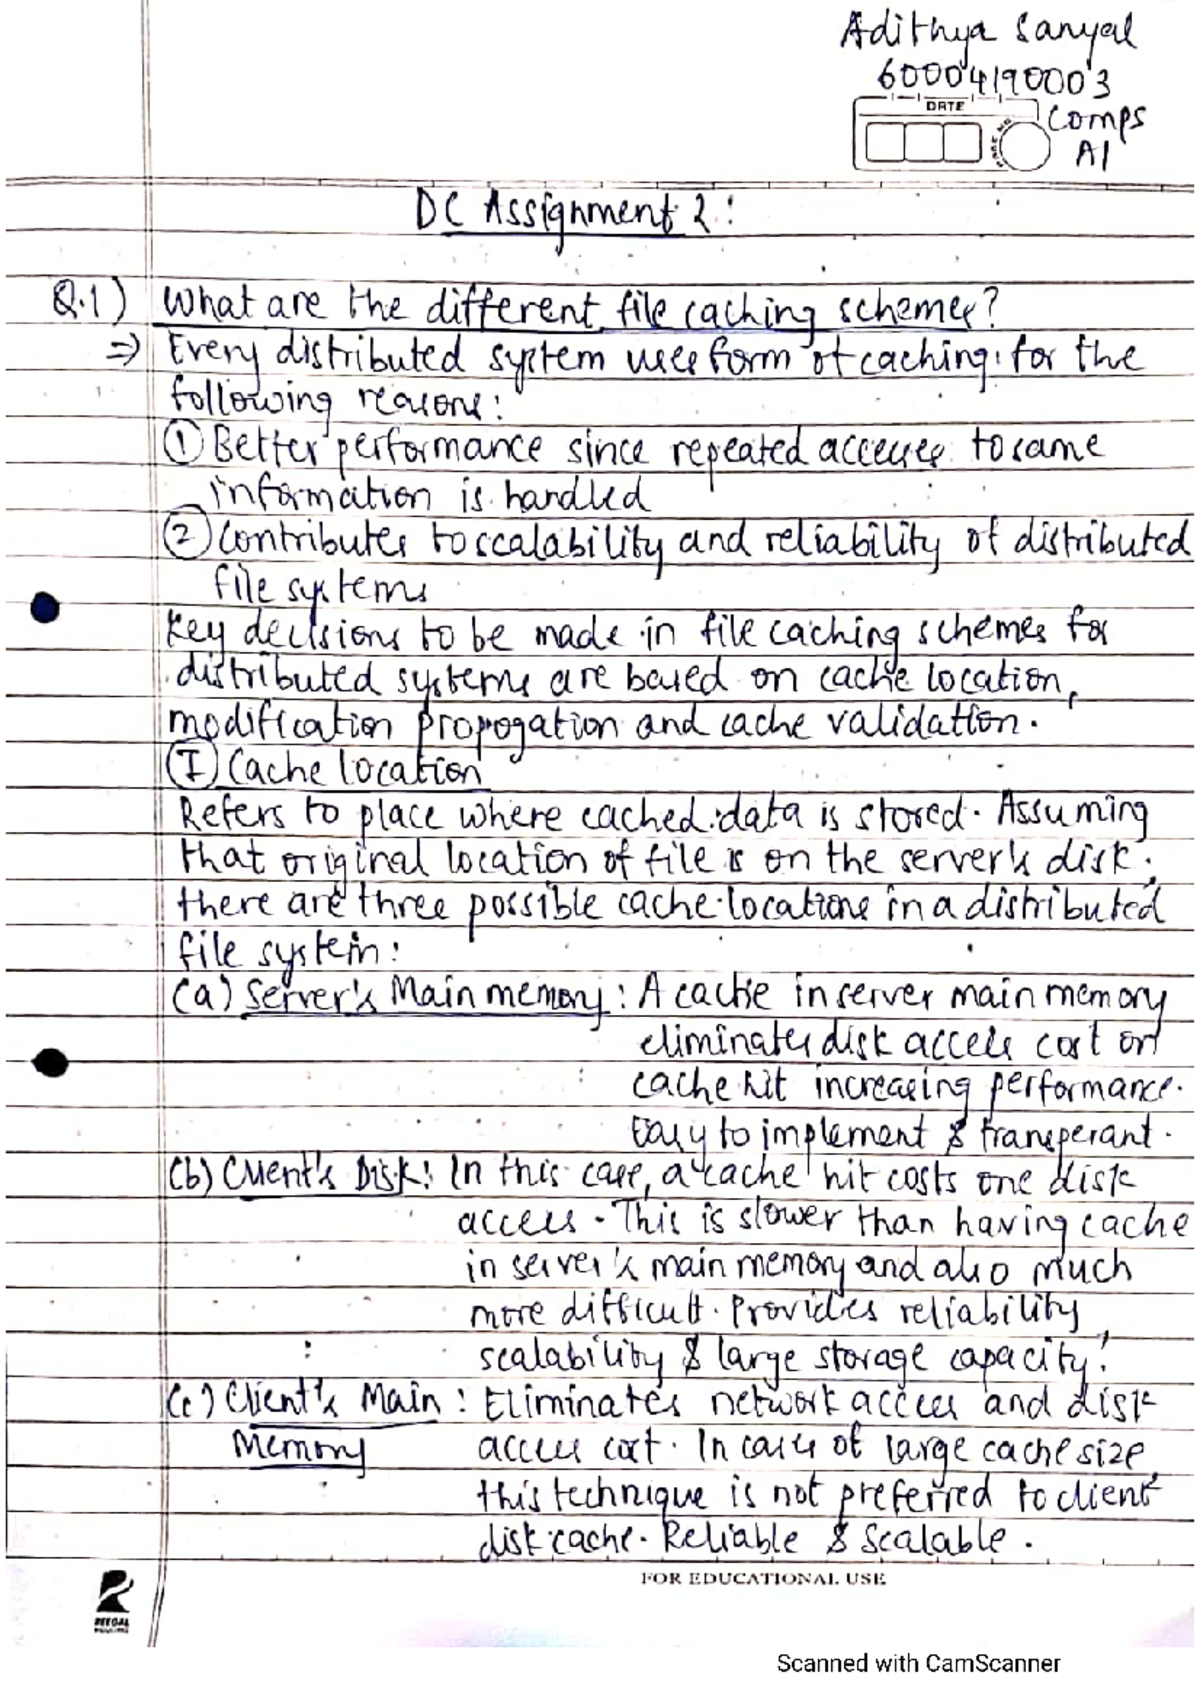 Adithya Sanyal
60004190003
DATE
Comps
A1
DC Assignment 2 :
Q.1) What are the different file caching schemes?
⇒ Every distributed system uses form of caching for the
following reasons:
① Better performance since repeated accesses to same
information is handled
② Contributes to scalability and reliability of distributed
file systems
Key decisions to be made in file caching schemes for
distributed systems are based on cache location,
modification propogation and cache validation.
(I) Cache location
Refers to place where cached data is stored. Assuming
that original location of file is on the server's disk,
there are three possible cache locations in a distributed
file system:
(a) Server's Main memory : A cache in server main memory
eliminates disk access cost on
cache hit increasing performance.
Easy to implement & transperant.
(b) Client's Disk: In this case, a cache hit costs one disk
access. This is slower than having cache
in server's main memory and also much
more difficult. Provides reliability,
scalability & large storage capacity.
(c) Client's Main : Eliminates network access and disk
Memory access cost. In cases of large cache size,
this technique is not preferred to client
disk cache. Reliable & Scalable.
FOR EDUCATIONAL USE
Scanned with CamScanner